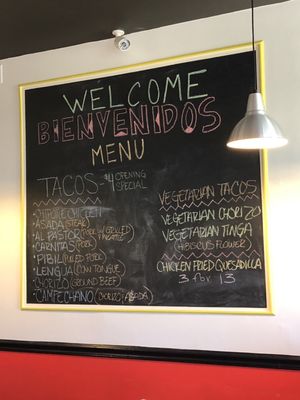 WELCOME
BIENVENIDOS
MENU
TACOS - $4 OPENING SPECIAL
- ASADA (STEAK)
- AL PASTOR (PORK W/ GRILLED PINEAPPLE)
- CARNITAS (PORK)
- PIBIL (PULLED PORK)
- LENGUA (COW TONGUE)
- CHORIZO (GROUND BEEF)
- CAMPECHANO (CHORIZO/ASADA)
VEGETARIAN TACOS
VEGETARIAN CHORIZO
VEGETARIAN TINGA
(HIBISCUS FLOWER)
CHICKEN FRIED QUESADILLA
3 FOR 13